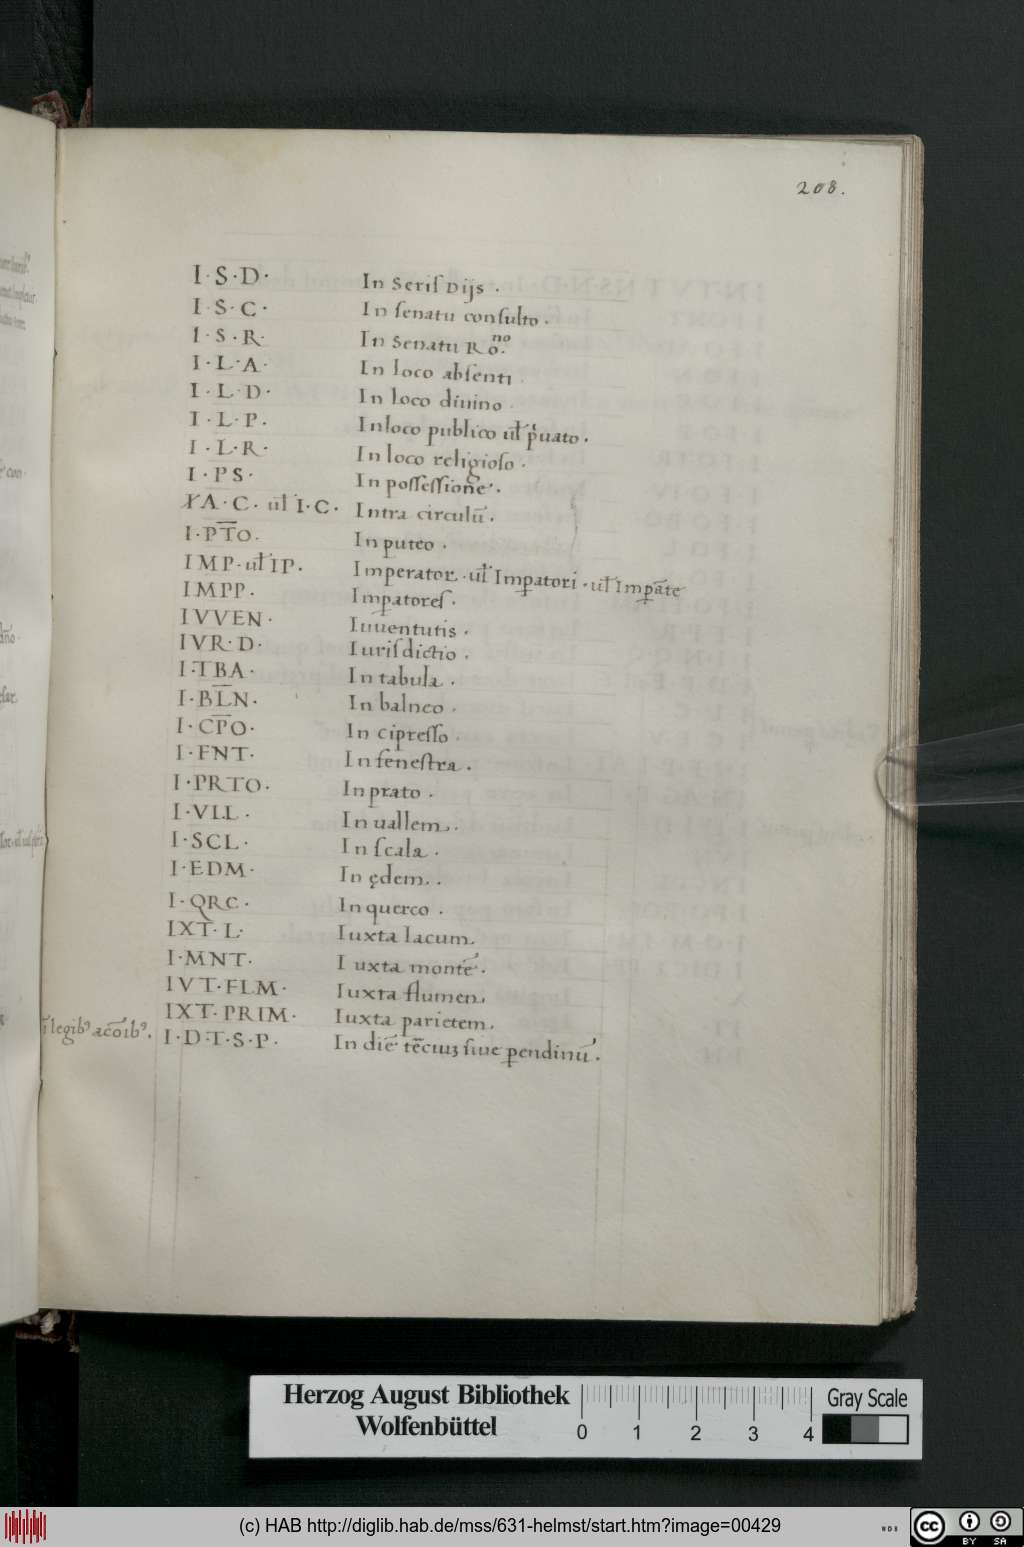 208.
I·S·D· In Seriſ Dijs.
I·S·C· In ſenatu conſulto.
I·S·R· In Senatu Ro.no
I·L·A· In loco abſenti.
I·L·D· In loco diuino.
I·L·P· Inloco publico ul̄ p̄uato.
I·L·R· In loco religioſo.
I·PS· In poſſeſſione.
A·C· ul̄ I·C· Intra circulū.
I·PT̄O. In puteo.
IMP·ul̄ IP. Imperator·ul̄ Imꝑatori·ul̄ Imꝑāte
IMPP. Imꝑatoreſ.
IVVEN· Iuuentutis.
IVR·D· Iuriſdictio.
I·TBA· In tabula.
I·BL̄N· In balneo.
I·CP̄O· In cipreſſo.
I·FNT· In feneſtra.
I·PRTO· In prato.
I·VLL· In uallem.
I·SCL· In ſcala.
I·EDM· In ędem.
I·QRC· In querco.
IXT·L· Iuxta lacum.
I·MNT· Iuxta montē.
IVT·FLM· Iuxta flumen.
IXT·PRIM· Iuxta parietem.
I·D·T·S·P· In diē tēciuꝫ ſiue ꝑendinū.
Herzog August Bibliothek
Wolfenbüttel
0 1 2 3 4
Gray Scale
(c) HAB http://diglib.hab.de/mss/631-helmst/start.htm?image=00429
WDB
cc BY SA